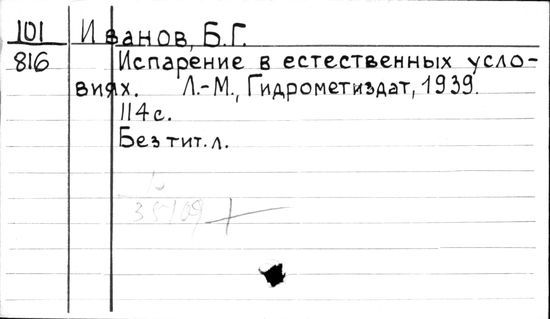 101
816
Иванов, Б.Г.
Испарение в естественных усло-
виях. Л.-М., Гидрометиздат, 1939.
114 с.
Без тит. л.
35109